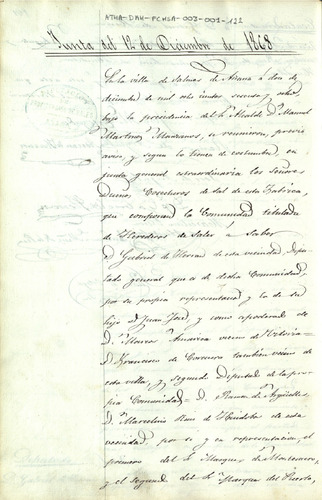 ATHA-DAH-PCHSA-003-001-122
Junta del 12 de Diciembre de 1868
En la villa de Salinas de Añana á doce de
diciembre de mil ochocientos sesenta y ocho
bajo la presidencia del Sr Alcalde Dn Manuel
Martinez Manzanos, se reunieron, previo
aviso, y segun lo tienen de costumbre, en
junta general extraordinaria los Señores
Dueños, Cosecheros de Sal de esta Fabrica,
que componen la Comunidad titulada
de Herederos de Salar á saber
D Gabriel de Herran de esta vecindad Dipu
tado general que es de dicha Comunidad,
por su propia representacion y la de su
hijo D Juan José y como apoderado
de D. Marcos vecino de Vitoria=
D. Francisco de Corcuera tambien vecino de
esta villa, y segundo Diputado de la pro
pia Comunidad= D. Ramon de Argüelles,
D. Marcelino Ruiz de de esta
vecindad por si y en representacion, el
primero del Sr Marques de
y el segundo del Sr Marques del Puerto,